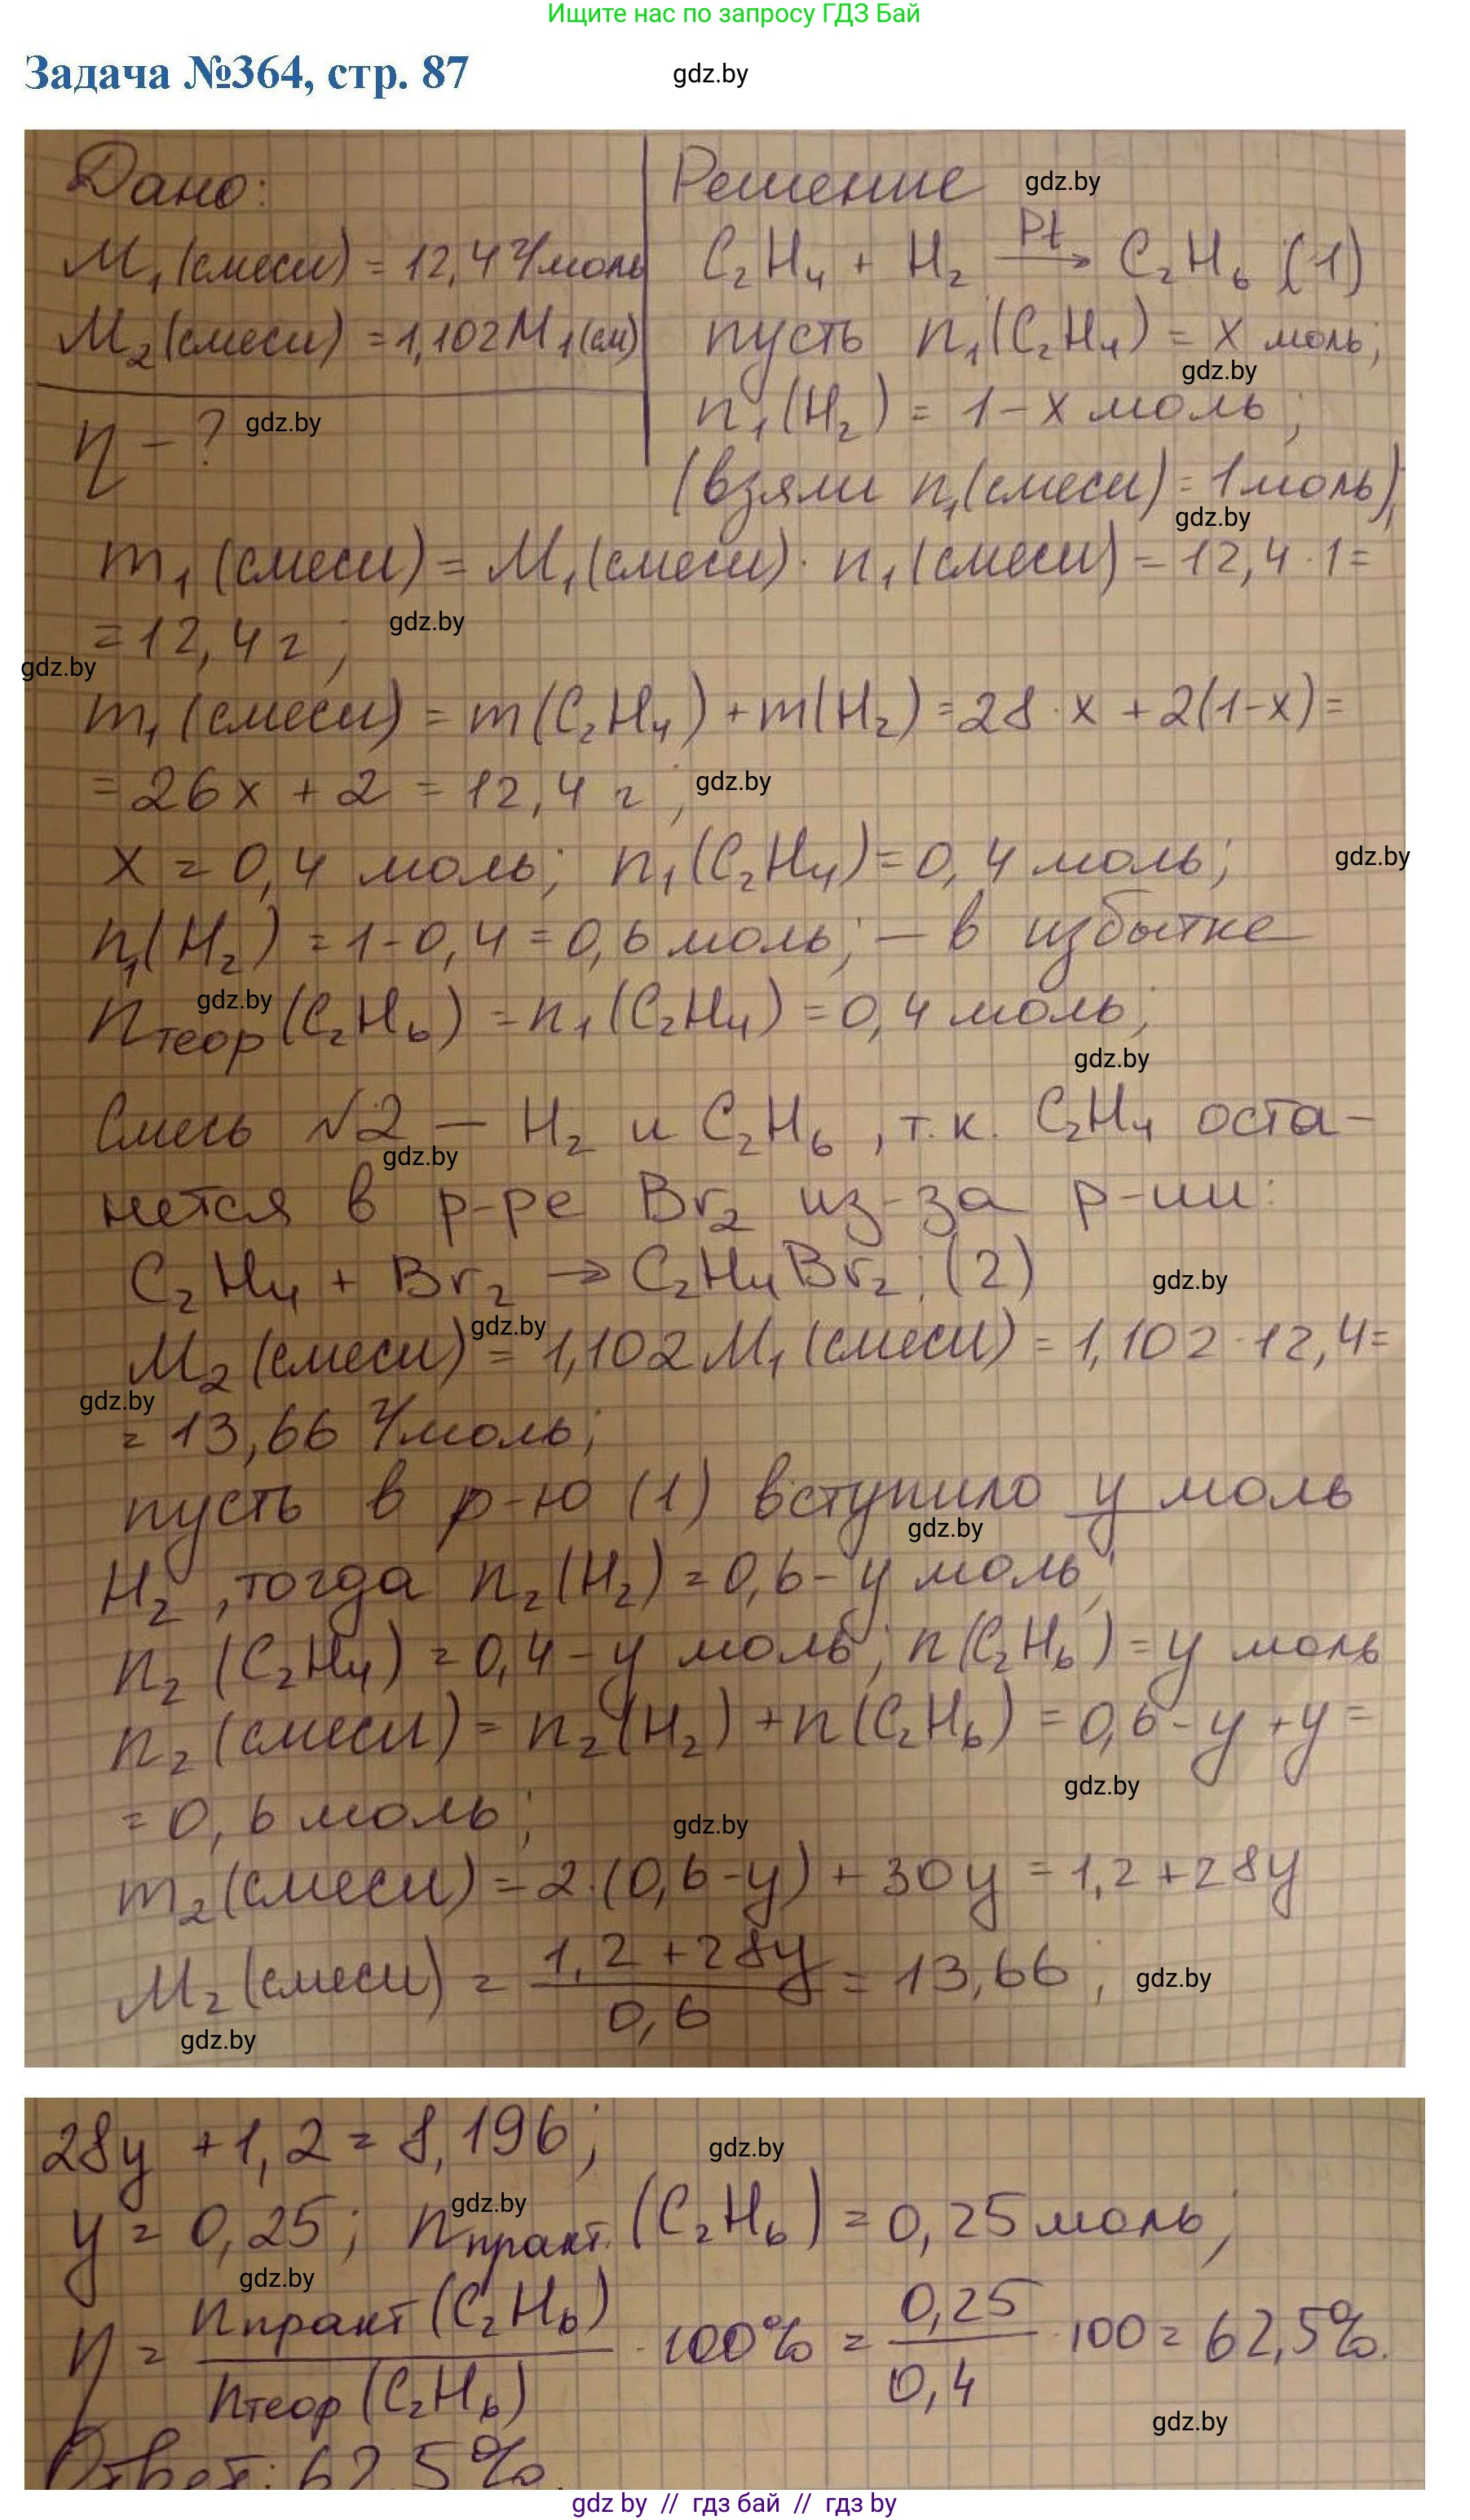 Ищите нас по запросу ГДЗ Бай
Задача №364, стр. 87
gdz.by
Дано:
M₁(смеси) = 12,4 г/моль
M₂(смеси) = 1,102 M₁(см)
η - ?
gdz.by
Решение
gdz.by
C₂H₄ + H₂ Pt→ C₂H₆ (1)
пусть n₁(C₂H₄) = x моль;
gdz.by
n₁(H₂) = 1-x моль;
(взяли n₁(смеси) = 1 моль)
gdz.by
m₁(смеси) = M₁(смеси) · n₁(смеси) = 12,4 · 1 =
= 12,4 г;
gdz.by
gdz.by
m₁(смеси) = m(C₂H₄) + m(H₂) = 28 · x + 2(1-x) =
= 26x + 2 = 12,4 г;
gdz.by
x = 0,4 моль; n₁(C₂H₄) = 0,4 моль;
gdz.by
n₁(H₂) = 1-0,4 = 0,6 моль; — в избытке
gdz.by
nтеор(C₂H₆) = n₁(C₂H₄) = 0,4 моль;
gdz.by
Смесь №2 — H₂ и C₂H₆, т.к. C₂H₄ оста-
gdz.by
нется в р-ре Br₂ из-за р-ии:
C₂H₄ + Br₂ → C₂H₄Br₂; (2)
gdz.by
gdz.by
M₂(смеси) = 1,102 M₁(смеси) = 1,102 · 12,4 =
gdz.by
= 13,66 г/моль;
пусть в р-ю (1) вступило y моль
gdz.by
H₂, тогда n₂(H₂) = 0,6 - y моль;
n₂(C₂H₄) = 0,4 - y моль; n(C₂H₆) = y моль
n₂(смеси) = n₂(H₂) + n(C₂H₆) = 0,6 - y + y =
gdz.by
= 0,6 моль;
gdz.by
m₂(смеси) = 2·(0,6-y) + 30y = 1,2 + 28y
M₂(смеси) = (1,2 + 28y)/0,6 = 13,66;
gdz.by
gdz.by
28y + 1,2 = 8,196;
gdz.by
gdz.by
y = 0,25; nпракт.(C₂H₆) = 0,25 моль;
gdz.by
η = nпракт(C₂H₆)/nтеор(C₂H₆) · 100% = 0,25/0,4 · 100 = 62,5%.
gdz.by
Ответ: 62,5%.
gdz by // гдз бай // гдз by